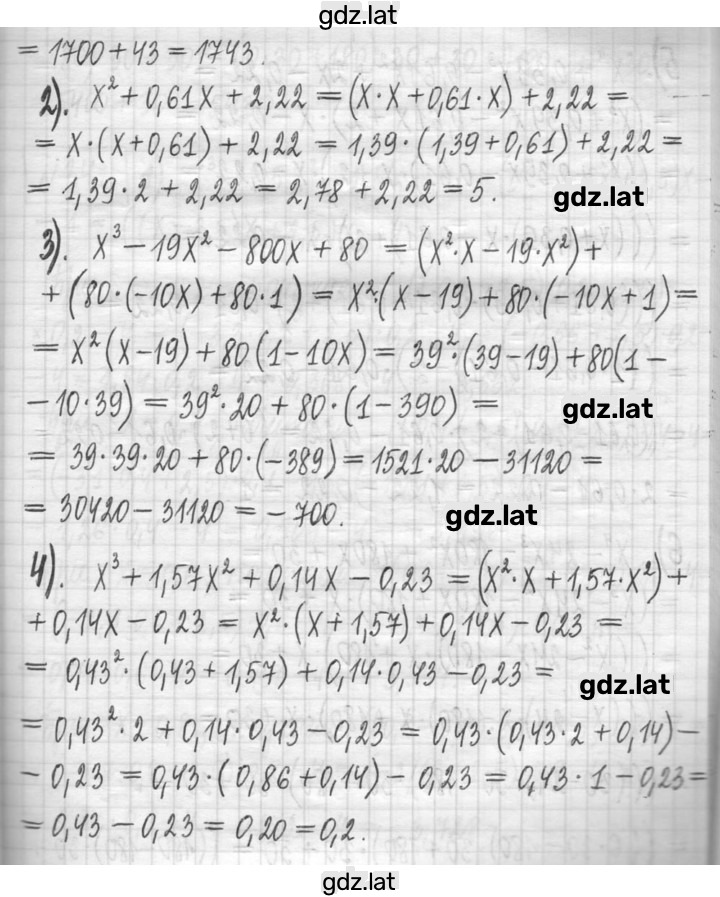 gdz.lat
= 1700 + 43 = 1743.
2). x² + 0,61x + 2,22 = (x·x + 0,61·x) + 2,22 =
= x·(x + 0,61) + 2,22 = 1,39·(1,39 + 0,61) + 2,22 =
= 1,39·2 + 2,22 = 2,78 + 2,22 = 5.
gdz.lat
3). x³ − 19x² − 800x + 80 = (x²·x − 19·x²) +
+ (80·(−10x) + 80·1) = x²·(x − 19) + 80·(−10x + 1) =
= x²(x − 19) + 80(1 − 10x) = 39²·(39 − 19) + 80(1 −
− 10·39) = 39²·20 + 80·(1 − 390) =
gdz.lat
= 39·39·20 + 80·(−389) = 1521·20 − 31120 =
= 30420 − 31120 = − 700.
gdz.lat
4). x³ + 1,57x² + 0,14x − 0,23 = (x²·x + 1,57·x²) +
+ 0,14x − 0,23 = x²·(x + 1,57) + 0,14x − 0,23 =
= 0,43²·(0,43 + 1,57) + 0,14·0,43 − 0,23 =
gdz.lat
= 0,43²·2 + 0,14·0,43 − 0,23 = 0,43·(0,43·2 + 0,14) −
− 0,23 = 0,43·(0,86 + 0,14) − 0,23 = 0,43·1 − 0,23 =
= 0,43 − 0,23 = 0,20 = 0,2.
gdz.lat